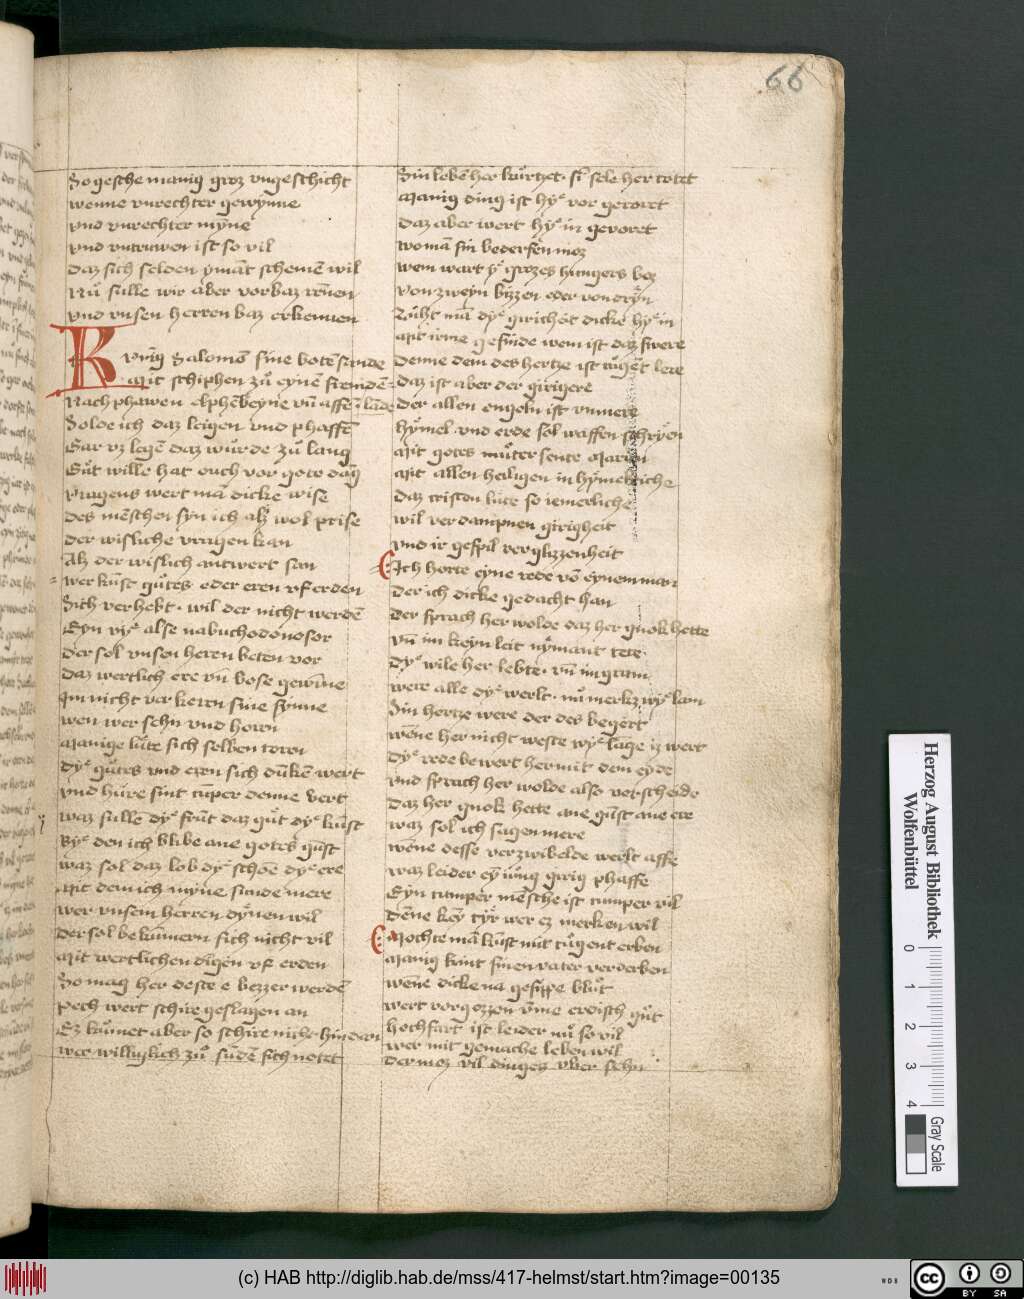 66
So gesche manig groz vngeschicht
wenne vnrechter gewynne
vnd vnrechter myñe
vnd vntruwen ist so vil
daz sich selden ymāt schemē wil
Nů sulle wir aber vorbaz rēnen
vnd vnsen herren baz erkennen
Kvnig Salomān sine botē sande
Mit schiphen zů eynē fremdē
Nach phawen elphēbeyne vn̄ affē lāde
Solde ich daz leigen vnd phaffē
Gar vz legē daz wůrde zů lang
Gůt wille hat ouch vor gote dāg
vragens wert mā dicke wise
des mēschen syn ich alz wol prise
der wisliche vragen kan
Alz der wislich antwert san
wer kůst gůtes oder eren vf erden
Sich verhebt wil der nicht werdē
Eyn vyͤ alse nabuchodonosor
der sol vnsen heren beten vor
daz wertlich ere vn̄ bose gewīne
Im nicht vor keren sine synne
wen wer sehn vnd horn
Manige lůte sich selben torn
dyͤ gůtes vnd eren sich dūkē wert
vnd hure sint tūper denne vert
waz sulle dyͤ frůt daz gůt dyͤ kůst
Byͤ den ich blibe ane gotes gūst
waz sol daz lob dyͤ schōe dyͤ ere
Mit dem ich myne sunde mere
wer vnsem herren dynen wil
der sol bekůmern sich nicht vil
Mit wertlichen dīgen vf erden
So mag her deste e bezzer werdē
Pech wert schire geslagen an
Ez kůmet aber so schire nicht hindan
wer willyklich zů sūdē sich notet
Sin lebē her kůrtzet sī sele her totet
Manig ding ist hyͤ vor geroret
daz aber wert hyͤ in gevoret
womā sin bederfen moz
wem wart yͤ grozes hungers boz
von zweyn byzen oder von dryn
Zůht mā dyͤ girichēt dicke hyͤ in
Mit irme gesinde wem ist daz swere
Denne dem des hertze ist tůgēt lere
daz ist aber der girigere
Der allen engeln ist vnmere
hymel vnd erde sol waffen schryen
Mit gotes můter sente Marien
Mit allen heiligen in hymelriche
daz cristen lůte so iemerliche
wil verdampnen girigheit
vnd ir gespil vergizzenheit
Ich horte eyne rede vō eynem man
der ich dicke gedacht han
der sprach her wolde daz her gnok hette
vn̄ im keyn leit nymant tete
dyͤ wile her lebte vn̄ im gram
were alle dyͤ werlt nů merkz wyͤ lam
Sin hertze were der des begert
wēne her nicht weste wyͤ lāge iz wert
dyͤ rede bewert her mit dem eyde
vnd sprach her wolde also verscheide
daz her gnok hette ane gūst ane ere
waz sol ich sagen mere
wēne desse verzwibelde werlt affe
waz leider eȳ iūng girig phaffe
Eyn tumper mēsche ist tumper vil
dēne keȳ tyr wer ez merken wil
Mochte mā kůst mit tůgent erben
Manig kint sinen vater verderben
wēne dicke na gesippe blůt
wert vorgozzen vme erdisch gůt
hochfart ist leider nů so vil
wer mit gemache leben wil
der moz vil dinges vber sehn
Herzog August Bibliothek
Wolfenbüttel
0 1 2 3 4
Gray Scale
(c) HAB http://diglib.hab.de/mss/417-helmst/start.htm?image=00135
WDB
cc BY SA